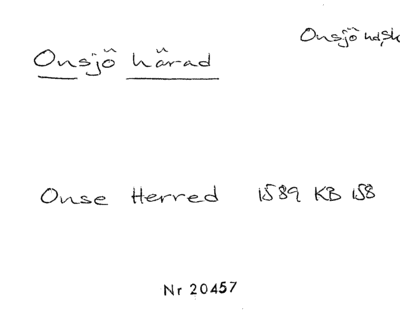 Onsjö hd, Sk
Onsjö härad
Onse Herred 1589 KB 158
Nr 20457